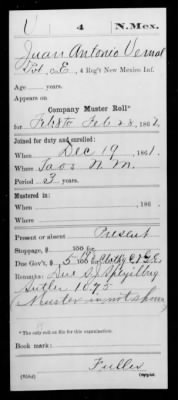 V 4 N.Mex.
Juan Antonio Vernal
Pvt, Co. E, 4 Reg't New Mexico Inf.
Age years.
Appears on
Company Muster Roll*
for Feb 28, 1862.
Joined for duty and enrolled:
When Dec 19, 1861.
Where Taos N.M.
Period 3 years.
Mustered in:
When , 186 .
Where
Present or absent Present
Stoppage, $ 100 for
Due Gov't, $ 5 100 for
Remarks: Due S. J. Spiegelberg
Sutler 1875
Muster in not shown
*The only roll on file for this examination.
Book mark:
Fuller
Copyist.